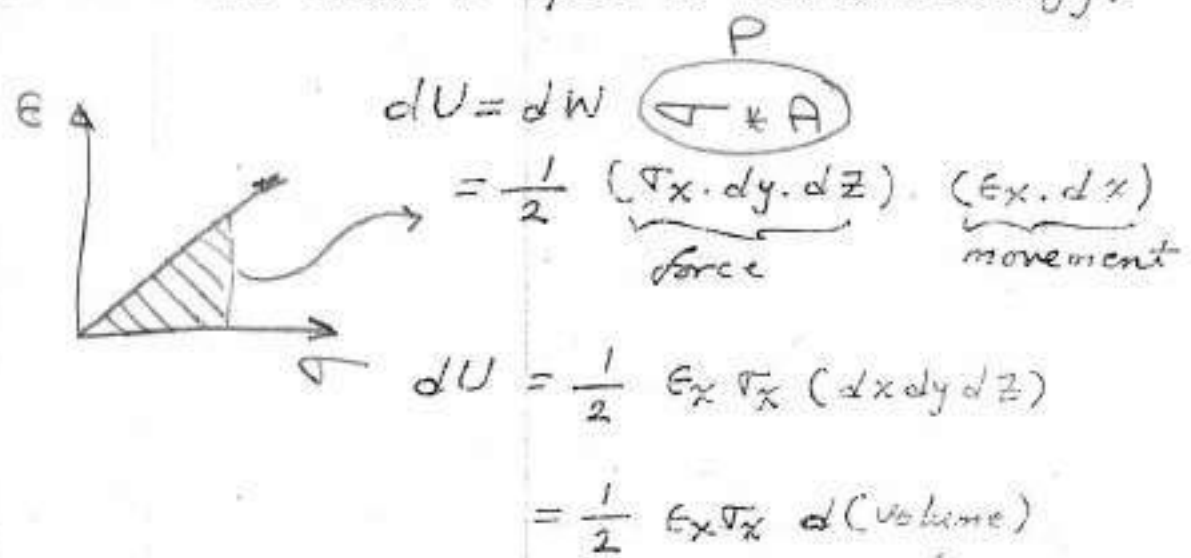 P
ϵ dU = dW σ * A
= 1/2 (σx . dy . dz) . (ϵx . dx)
force movement
σ dU = 1/2 ϵx σx (dx dy dz)
= 1/2 ϵx σx d(volume)